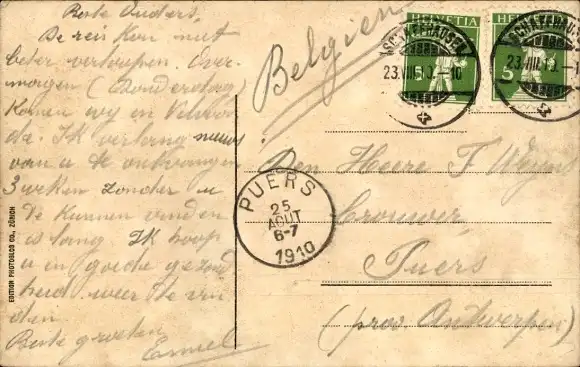 Beste Ouders,
De reis kon niet
beter verloopen. Over-
morgen (Donderdag)
komen wij en Vilvoor
de. Ik verlang nieuws
van u te ontvangen
3 weken zonder u
te kunnen vinden
is lang Ik hoop
u in goede gezond
heid weer te vin
den
Beste groeten
Emiel
EDITION PHOTOGLOB CO., ZÜRICH
Belgien
HELVETIA
HELVETIA
5
SCHAFFHAUSEN
23.VIII.10.-10
SCHAFFHAUSEN
23.VIII.10.-1
PUERS
25
AOUT
6-7
1910
Den Heere F
Brouwer
Puers
(prov Antwerpen)